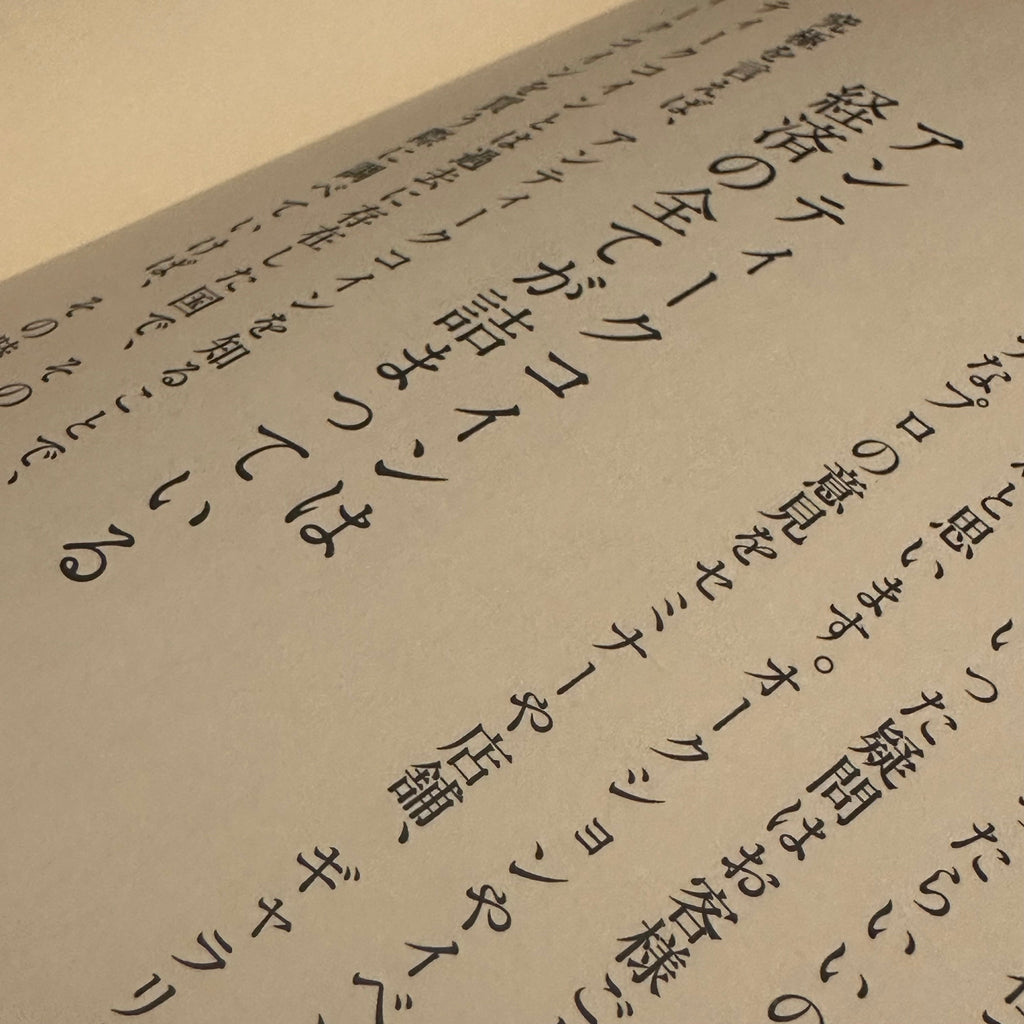 たらいいの
いった疑問はお客様ご
と思います。オークションやイベ
なプロの意見をセミナーや店舗、ギャラリ
アンティークコインは
経済の全てが詰まっている
究極を言えば、アンティークコインを知ることで、
ティークコインとは過去に存在した国で、その
コインを買う際に調べていけば、その